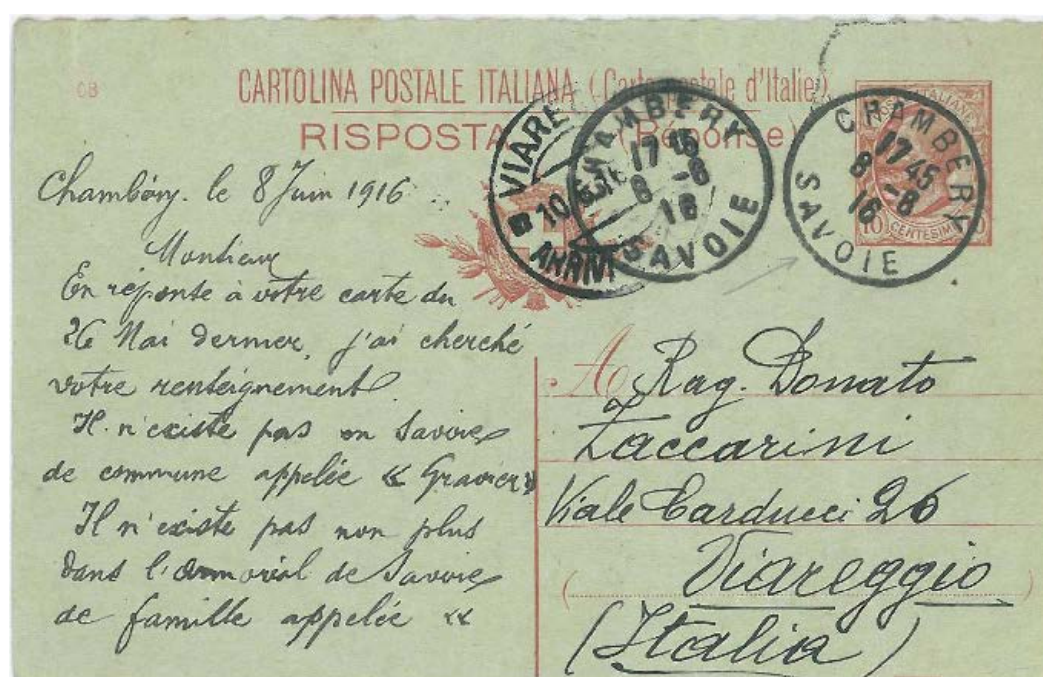 CARTOLINA POSTALE ITALIANA (Carte postale d'Italie)
RISPOSTA (Réponse)
POSTE ITALIANE
10 CENTESIMI 10
CHAMBERY
17 45
8 -8
16
SAVOIE
CHAMBERY
17
8 -8
16
SAVOIE
VIARE
10
ARRIVI
Chambéry. le 8 Juin 1916
Monsieur
En réponse à votre carte du
26 Mai dernier, j'ai cherché
votre renseignement.
Il n'existe pas en Savoie
de commune appelée « Gravier »
Il n'existe pas non plus
dans l'armorial de Savoie
de famille appelée «
A Rag. Donato
Zaccarini
Viale Carducci 26
Viareggio
(Italia)